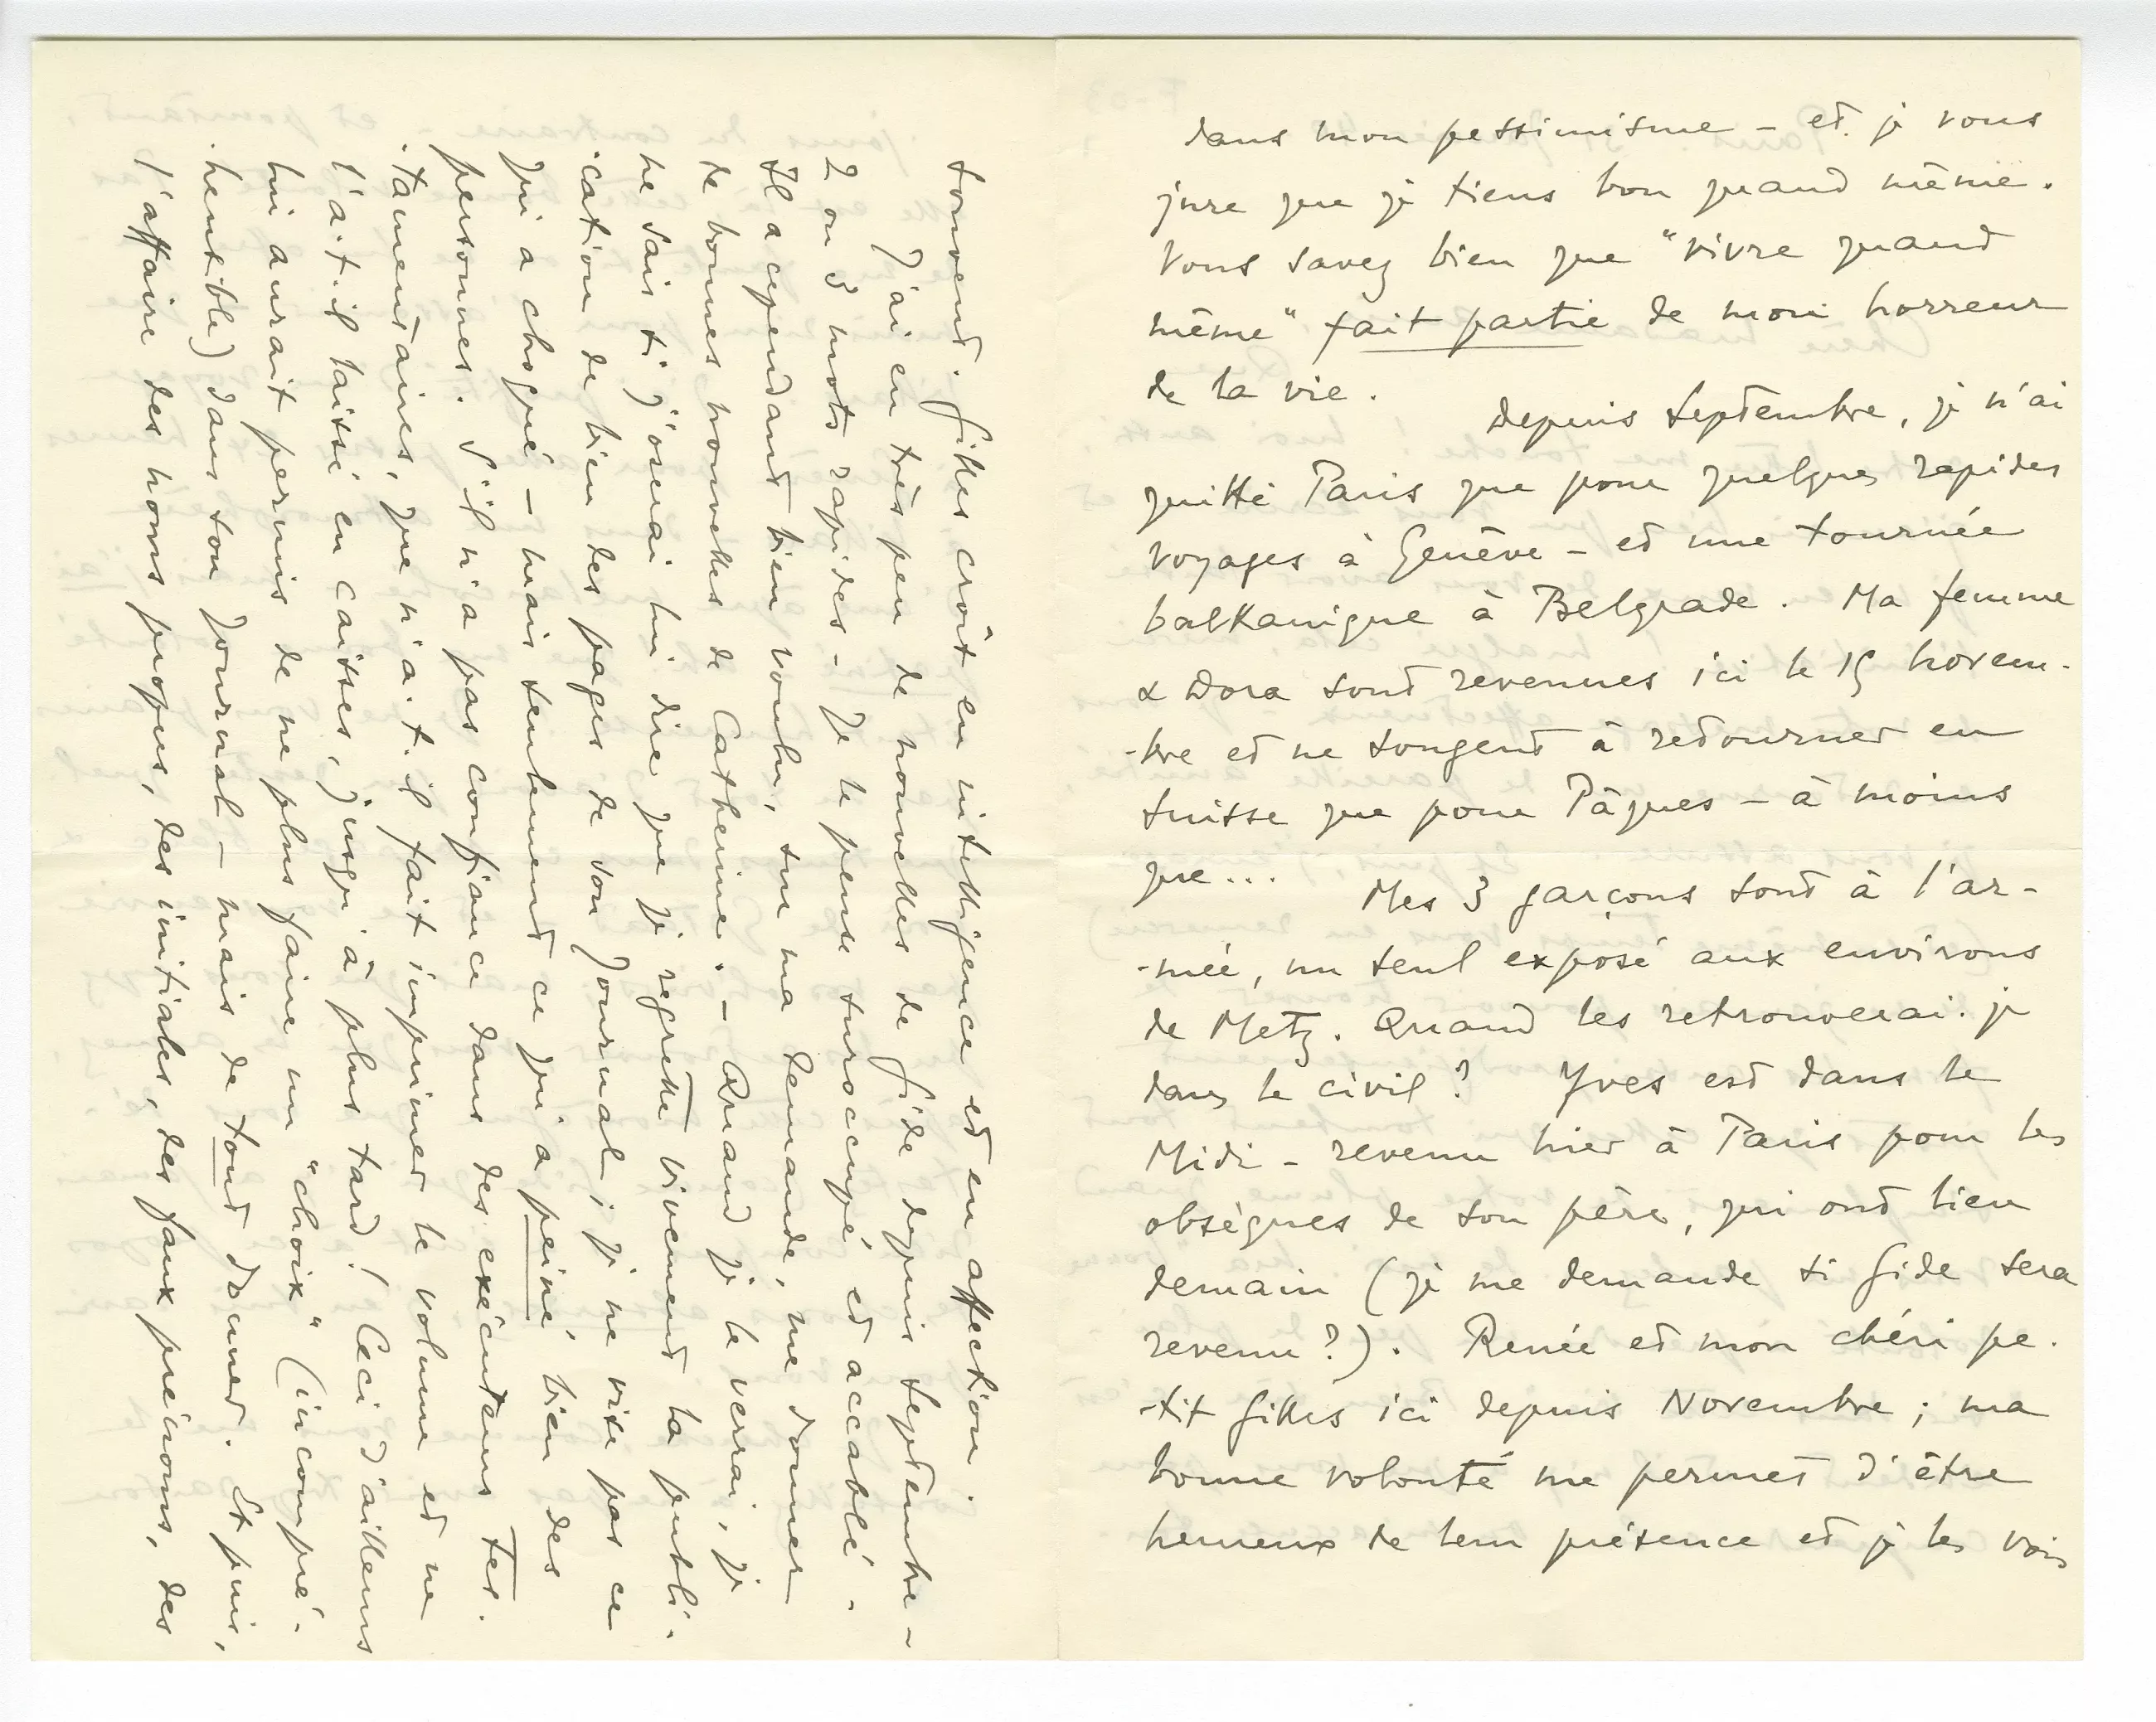 dans mon pessimisme – et je vous
jure que je tiens bon quand même.
Vous savez bien que "vivre quand
même" fait partie de mon horreur
de la vie.
Depuis Septembre, je n'ai
quitté Paris que pour quelques rapides
voyages à Genève – et une tournée
balkanique à Belgrade. Ma femme
& Dora sont revenues ici le 15 novem-
-bre et ne songent à retourner en
Suisse que pour Pâques – à moins
que...
Mes 3 garçons sont à l'ar-
-mée, un seul exposé aux environs
de Metz. Quand les retrouverai-je
dans le civil? Yves est dans le
Midi – revenu hier à Paris pour les
obsèques de son père, qui ont lieu
demain (je me demande si Gide sera
revenu?). Renée et mon chéri pe-
-tit Gilles ici depuis Novembre; ma
bonne volonté me permet d'être
heureux de leur présence et je les vois
souvent. Gilles croît en intelligence et en affection.
J'ai eu très peu de nouvelles de Gide depuis septembre –
2 ou 3 mots rapides – Je le pense suroccupé et accablé.
Il a cependant bien voulu, sur ma demande, me donner
de bonnes nouvelles de Catherine. – Quand je le verrai, je
ne sais si j'oserai lui dire que je regrette vivement la publi-
-cation de bien des pages de son Journal; je ne vise pas ce
qui a choqué – mais seulement ce qui a peiné bien des
personnes. S'il n'a pas confiance dans des exécuteurs tes-
-tamentaires, que n'a-t-il fait imprimer le volume et ne
l'a-t-il laissé en caisses, jusqu'à plus tard! Ceci d'ailleurs
lui aurait permis de ne plus faire un "choix" (incompré-
-hensible) dans son Journal – mais de tout donner. Et puis,
l'affaire des noms propres, des initiales, des faux prénoms, des